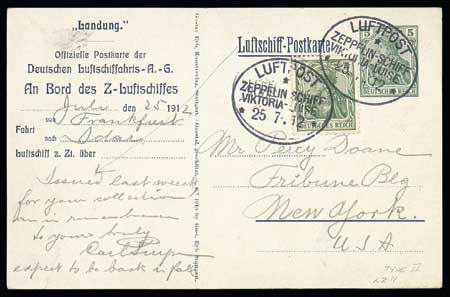 „Landung."
Offizielle Postkarte der
Deutschen Luftschiffahrts-A.-G.
An Bord des Z-Luftschiffes
July 25 1912
von Frankfurt
Fahrt
nach
Luftschiff z. Zt. über
Issued last week
for your collection
in remembrance
to yours truly
Carl
expect to be back in fall
Luftschiff-Postkarte
LUFTPOST
ZEPPELIN-SCHIFF
VIKTORIA-LUISE
25 7. 12
DEUTSCHES REICH
LUFTPOST
ZEPPELIN-SCHIFF
VIKTORIA-LUISE
5 5
DEUTSCHES REICH
Mr Percy Doane
Tribune Blg
New York.
U S A
TYPE II